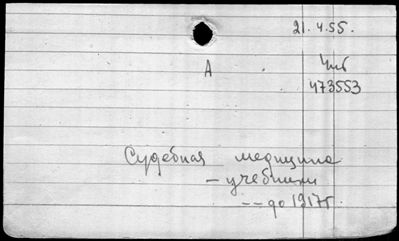 21.4.55.
А
Чит
473553
Судебная медицина
– учебники
-- до 1917г.